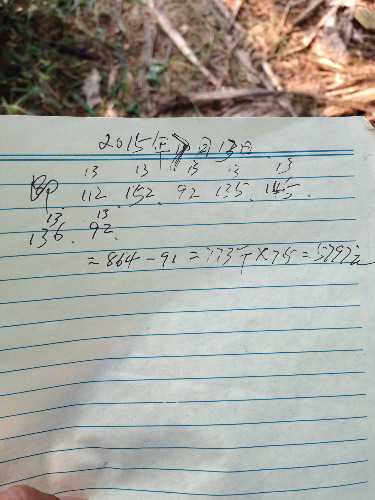 2015年 月13日
13 13 13 13 13
112. 152. 92. 135. 145.
13. 13
136. 92.
=864-91=773斤×75=5797元